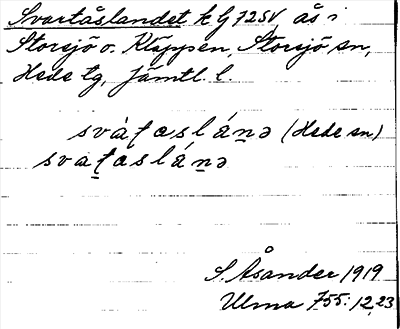 Svartåslandet k G 72 SV, ås i
Storsjö o. Kläppen, Storsjö sn,
Hede tg, Jämtl. l.
svàt̠aslán̠ə (Hede sn)
svat̠aslán̠ə
S. Åsander 1919
Ulma 755: 12, 23